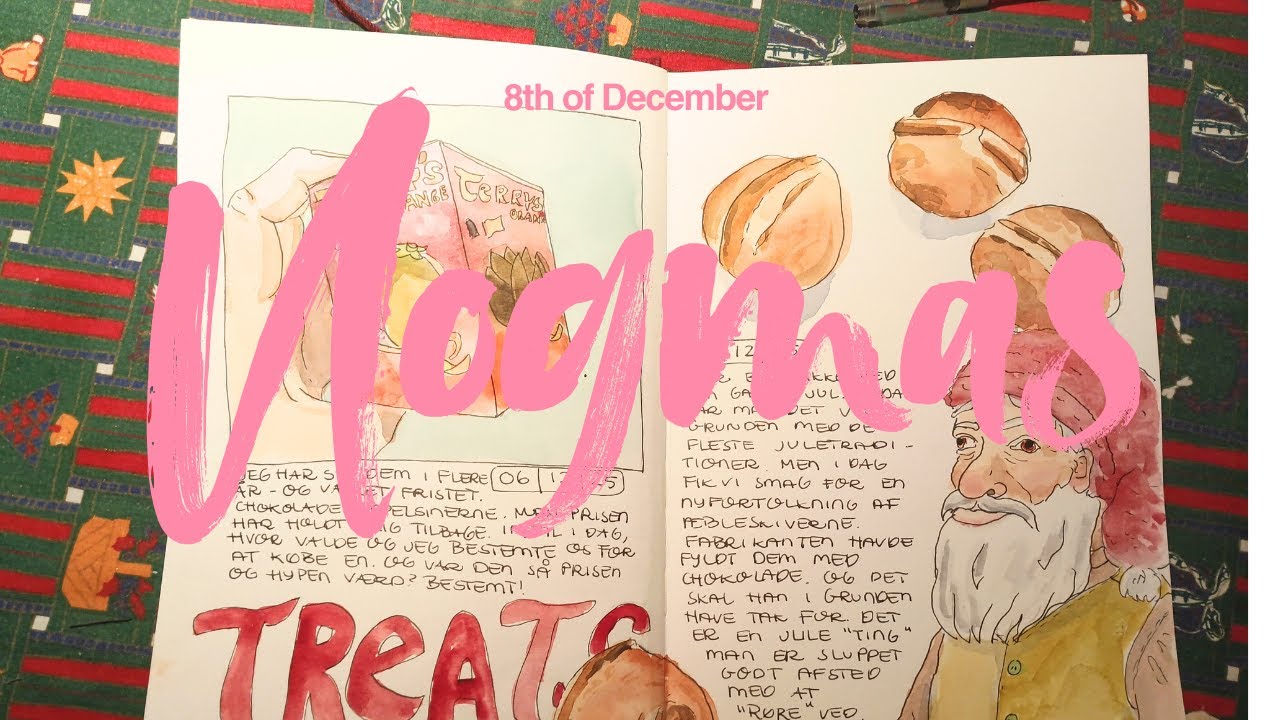 8th of December
Vlogmas
TERRY'S
JEG HAR DEM I FLERE 06
ÅR - OG FRISTET.
CHOKOLADE PRISEN
HAR HOLDT TILBAGE. I DAG,
HVOR VALDE OG JEG BESTEMTE OS FOR
AT KØBE EN. OG VAR DEN SÅ PRISEN
OG HYPEN VÆRD? BESTEMT!
TREATS
12
GRUNDEN MED DE
FLESTE JULETRADI-
TIONER. MEN I DAG
FIK VI SMAG FOR EN
NYFORTOLKNING AF
ÆBLESKIVERNE.
FABRIKANTEN HAVDE
FYLDT DEM MED
CHOKOLADE. OG DET
SKAL HAN I GRUNDEN
HAVE TAK FOR. DET
ER EN JULE "TING"
MAN ER SLUPPET
GODT AFSTED
MED AT
"RØRE" VED.